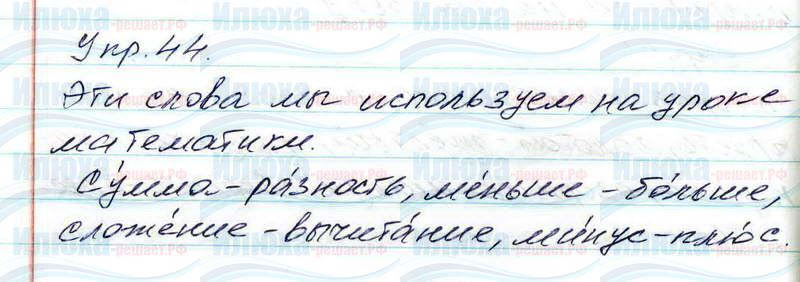 Упр. 44.
Эти слова мы используем на уроке
математики.
Су́мма - ра́зность, ме́ньше - бо́льше,
сложе́ние - вычита́ние, ми́нус - плю́с.